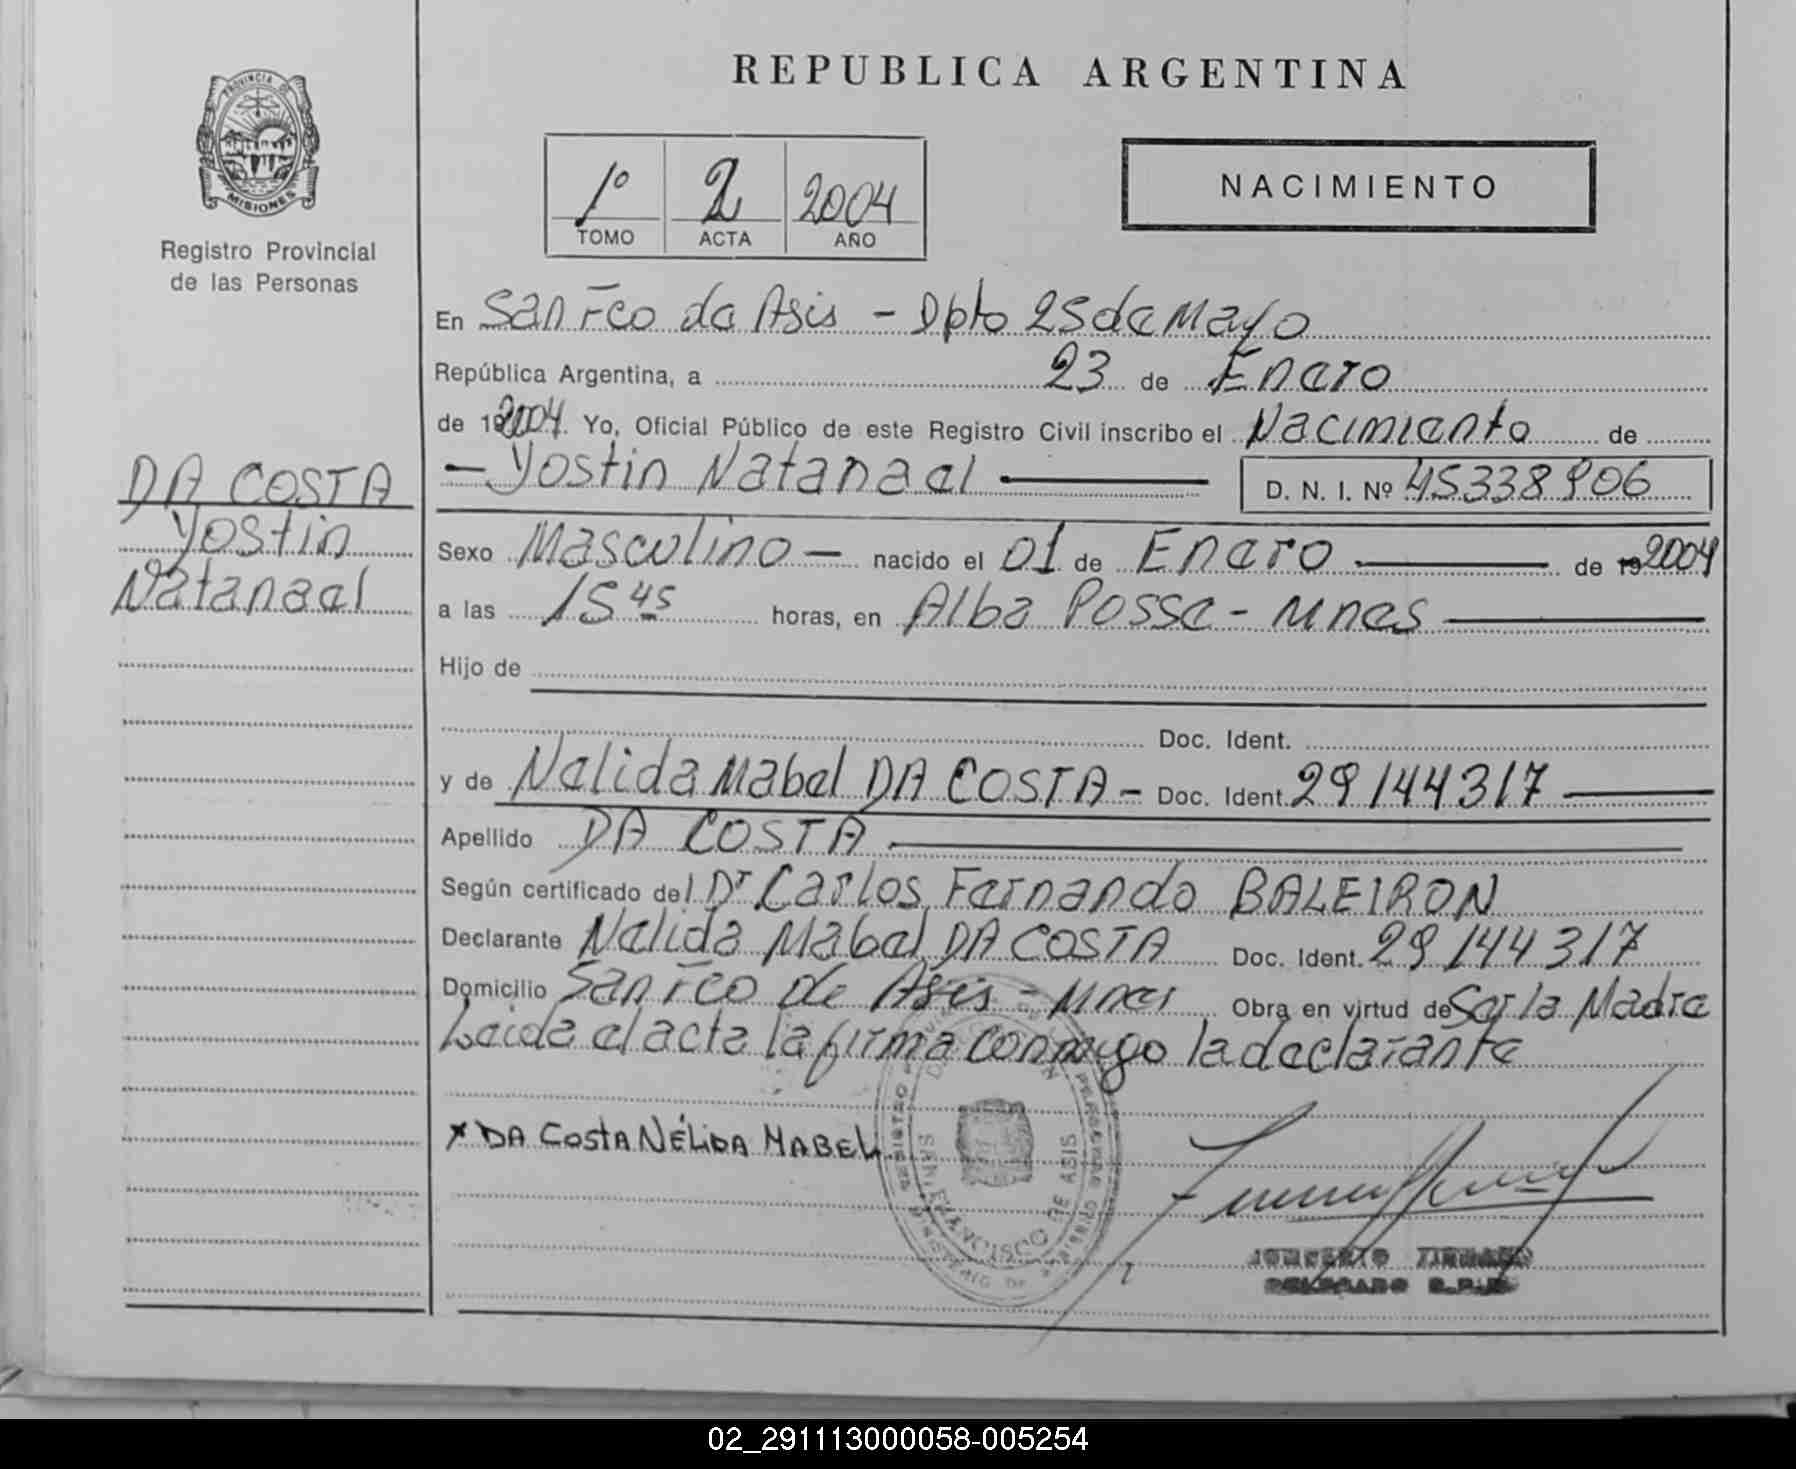 REPUBLICA ARGENTINA
PROVINCIA DE
MISIONES
Registro Provincial
de las Personas
1º 2 2004
TOMO ACTA AÑO
NACIMIENTO
En San Fco de Asis - Dpto 25 de Mayo
República Argentina, a 23 de Enero
de 2004. Yo, Oficial Público de este Registro Civil inscribo el Nacimiento de
- Yostin Natanael - D. N. I. Nº 45338906
DA COSTA
Yostin
Natanael
Sexo Masculino - nacido el 01 de Enero de 19 2004
a las 15 45 horas, en Alba Posse - Mnes
Hijo de
Doc. Ident.
y de Nelida Mabel DA COSTA - Doc. Ident. 29144317
Apellido DA COSTA
Según certificado del Dr Carlos Fernando BALEIRON
Declarante Nelida Mabel DA COSTA Doc. Ident. 29144317
Domicilio San Fco de Asis - Mnes Obra en virtud de Ser la Madre
Leida el acta la firma conmigo la declarante
x DA COSTA NÉLIDA MABEL
SAN FRANCISCO DE ASIS
02_291113000058-005254